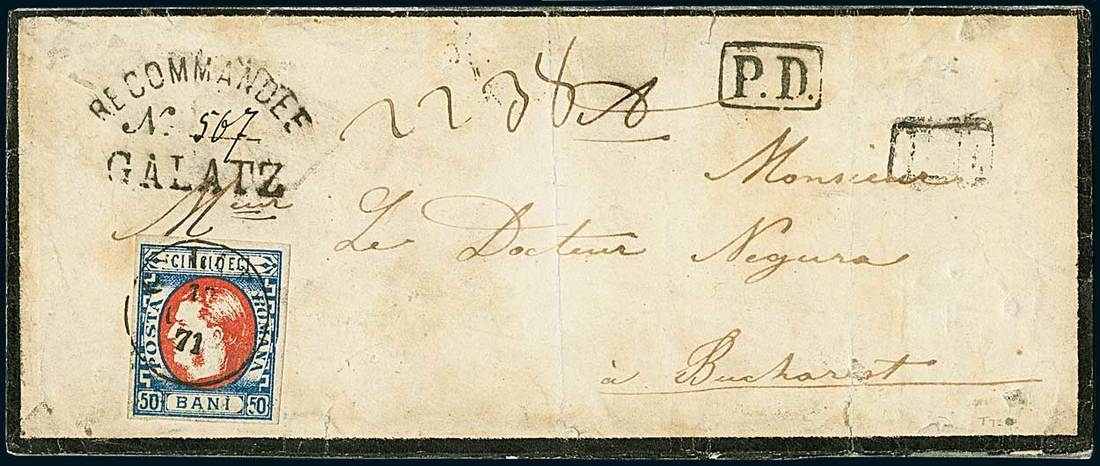 RECOMMANDÉE
No. 567
GALATZ
2238
P.D.
Monsieur
Le Docteur Negura
à Bucharest
CINCIDECI
POSTA
ROMANA
17
71
50 BANI 50